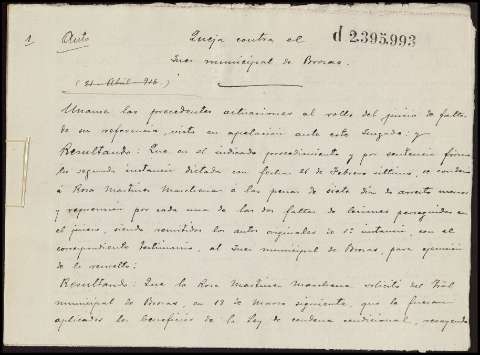 1 Auto Queja contra el d 2.395.993
Juez municipal de Brozas.
(21 Abril 916)
Unanse las precedentes actuaciones al rollo del juicio de faltas
de su referencia, visto en apelacion ante este Juzgado: y
Resultando: Que en el indicado procedimiento y por sentencia firme
de segunda instancia dictada con fecha 26 de Febrero último, se condenó
á Rosa Martinez Marchena á las penas de siete dias de arresto menor
y reprension por cada una de las dos faltas de lesiones perseguidas en
el juicio, siendo remitidos los autos originales de 1ª instancia, con el
correspondiente testimonio, al Juez municipal de Brozas, para ejecucion
de lo resuelto:
Resultando: Que la Rosa Martinez Marchena solicitó del Tral
municipal de Brozas, en 13 de Marzo siguiente, que la fueran
aplicados los beneficios de la ley de condena condicional, recayendo